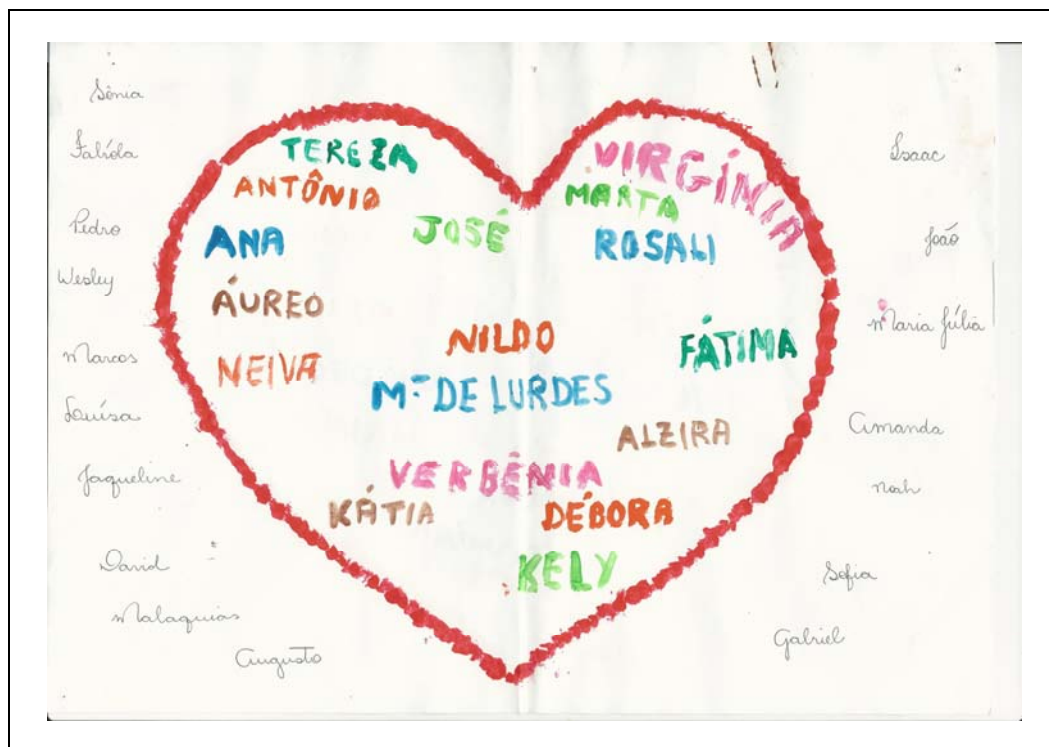 Sônia
Fabíola
Pedro
Wesley
Marcos
Louísa
Jaqueline
David
Malaquias
Augusto
TEREZA
ANTÔNIO
ANA
JOSÉ
ÁUREO
NEIVA
NILDO
Mª DE LURDES
VERBÊNIA
KÁTIA
VIRGÍNIA
MARTA
ROSALI
FÁTIMA
ALZIRA
DÉBORA
KELY
Isaac
João
Maria Júlia
Amanda
Noah
Sofia
Gabriel